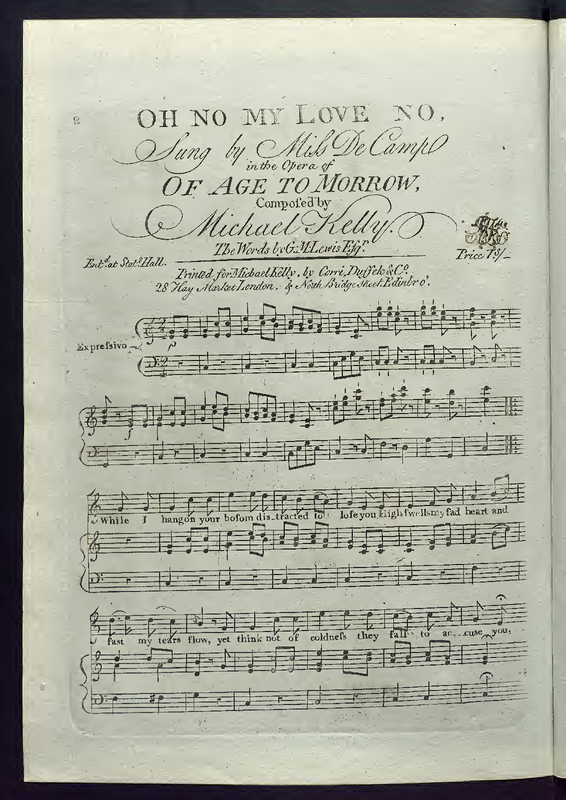 2
OH NO MY LOVE NO,
Sung by Miſs De Camp
in the Opera of
OF AGE TO MORROW,
Compoſed by
Michael Kelly.
The Words by G: M: Lewis Eſqr.
Entd. at Statrs. Hall.
Price 1s/-
Printed for Michael Kelly, by Corri, Duſsek & Co.
28 Hay Market London, & North Bridge Street Edinbro'.
Expreſsivo
While I hang on your boſom diſ_tracted to loſe you High ſwells my ſad heart and
faſt my tears flow, yet think not of coldneſs they fall to ac_cuſe you,